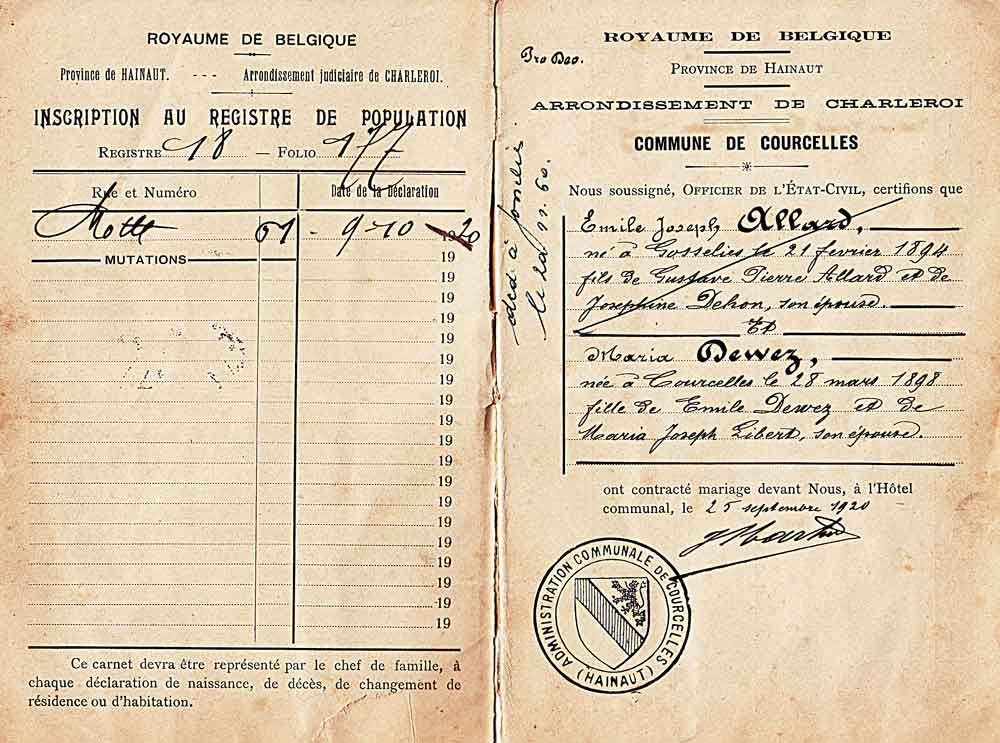 ROYAUME DE BELGIQUE
Province de HAINAUT. --- Arrondissement judiciaire de CHARLEROI.
INSCRIPTION AU REGISTRE DE POPULATION
REGISTRE 18 — FOLIO 177
Rue et Numéro Date de la Déclaration
Motte 61 - 9-10 1920
MUTATIONS 19
19
19
19
19
19
19
19
19
19
19
19
19
19
19
19
19
19
19
Ce carnet devra être représenté par le chef de famille, à
chaque déclaration de naissance, de décès, de changement de
résidence ou d'habitation.
Pro Deo.
déd à
le 20 11. 60.
ROYAUME DE BELGIQUE
PROVINCE DE HAINAUT
ARRONDISSEMENT DE CHARLEROI
COMMUNE DE COURCELLES
Nous soussigné, OFFICIER DE L'ÉTAT-CIVIL, certifions que
Emile Joseph Allard,
né à Gosselies le 21 fevrier 1894
fils de Gustave Pierre Allard et de
Josephine Dehon, son épouse.
Et
Maria Dewez,
née à Courcelles le 28 mars 1898
fille de Emile Dewez et de
Maria Joseph Libert, son épouse.
ont contracté mariage devant Nous, à l'Hôtel
communal, le 25 septembre 1920
ADMINISTRATION COMMUNALE DE COURCELLES
(HAINAUT)